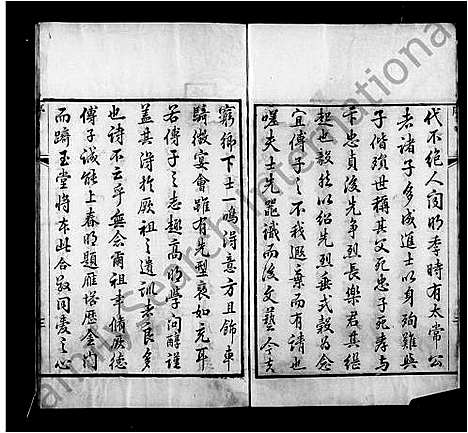 代不絕人向明季時有太常公
老諸子多成進士以身殉難與
子偕殞世稱其父死忠子死孝與
卞忠貞後先爭烈長樂君其繼
起也敦姓以紹先烈垂式穀為念
宜傅子之不我遐棄而有請也
嗟夫士先器識而後文藝今夫
窮鄉下士一鳴得意方且飾車
騎徵宴會雖有先型褎如充耳
若傅子之志趣高明學問醇謹
蓋其得於厥祖之遺訓者良多
也詩不云乎無念爾祖聿脩厥德
傅子誠能上春明題雁塔歷金門
而躋玉堂將本此合敬同愛之心
Family Search International